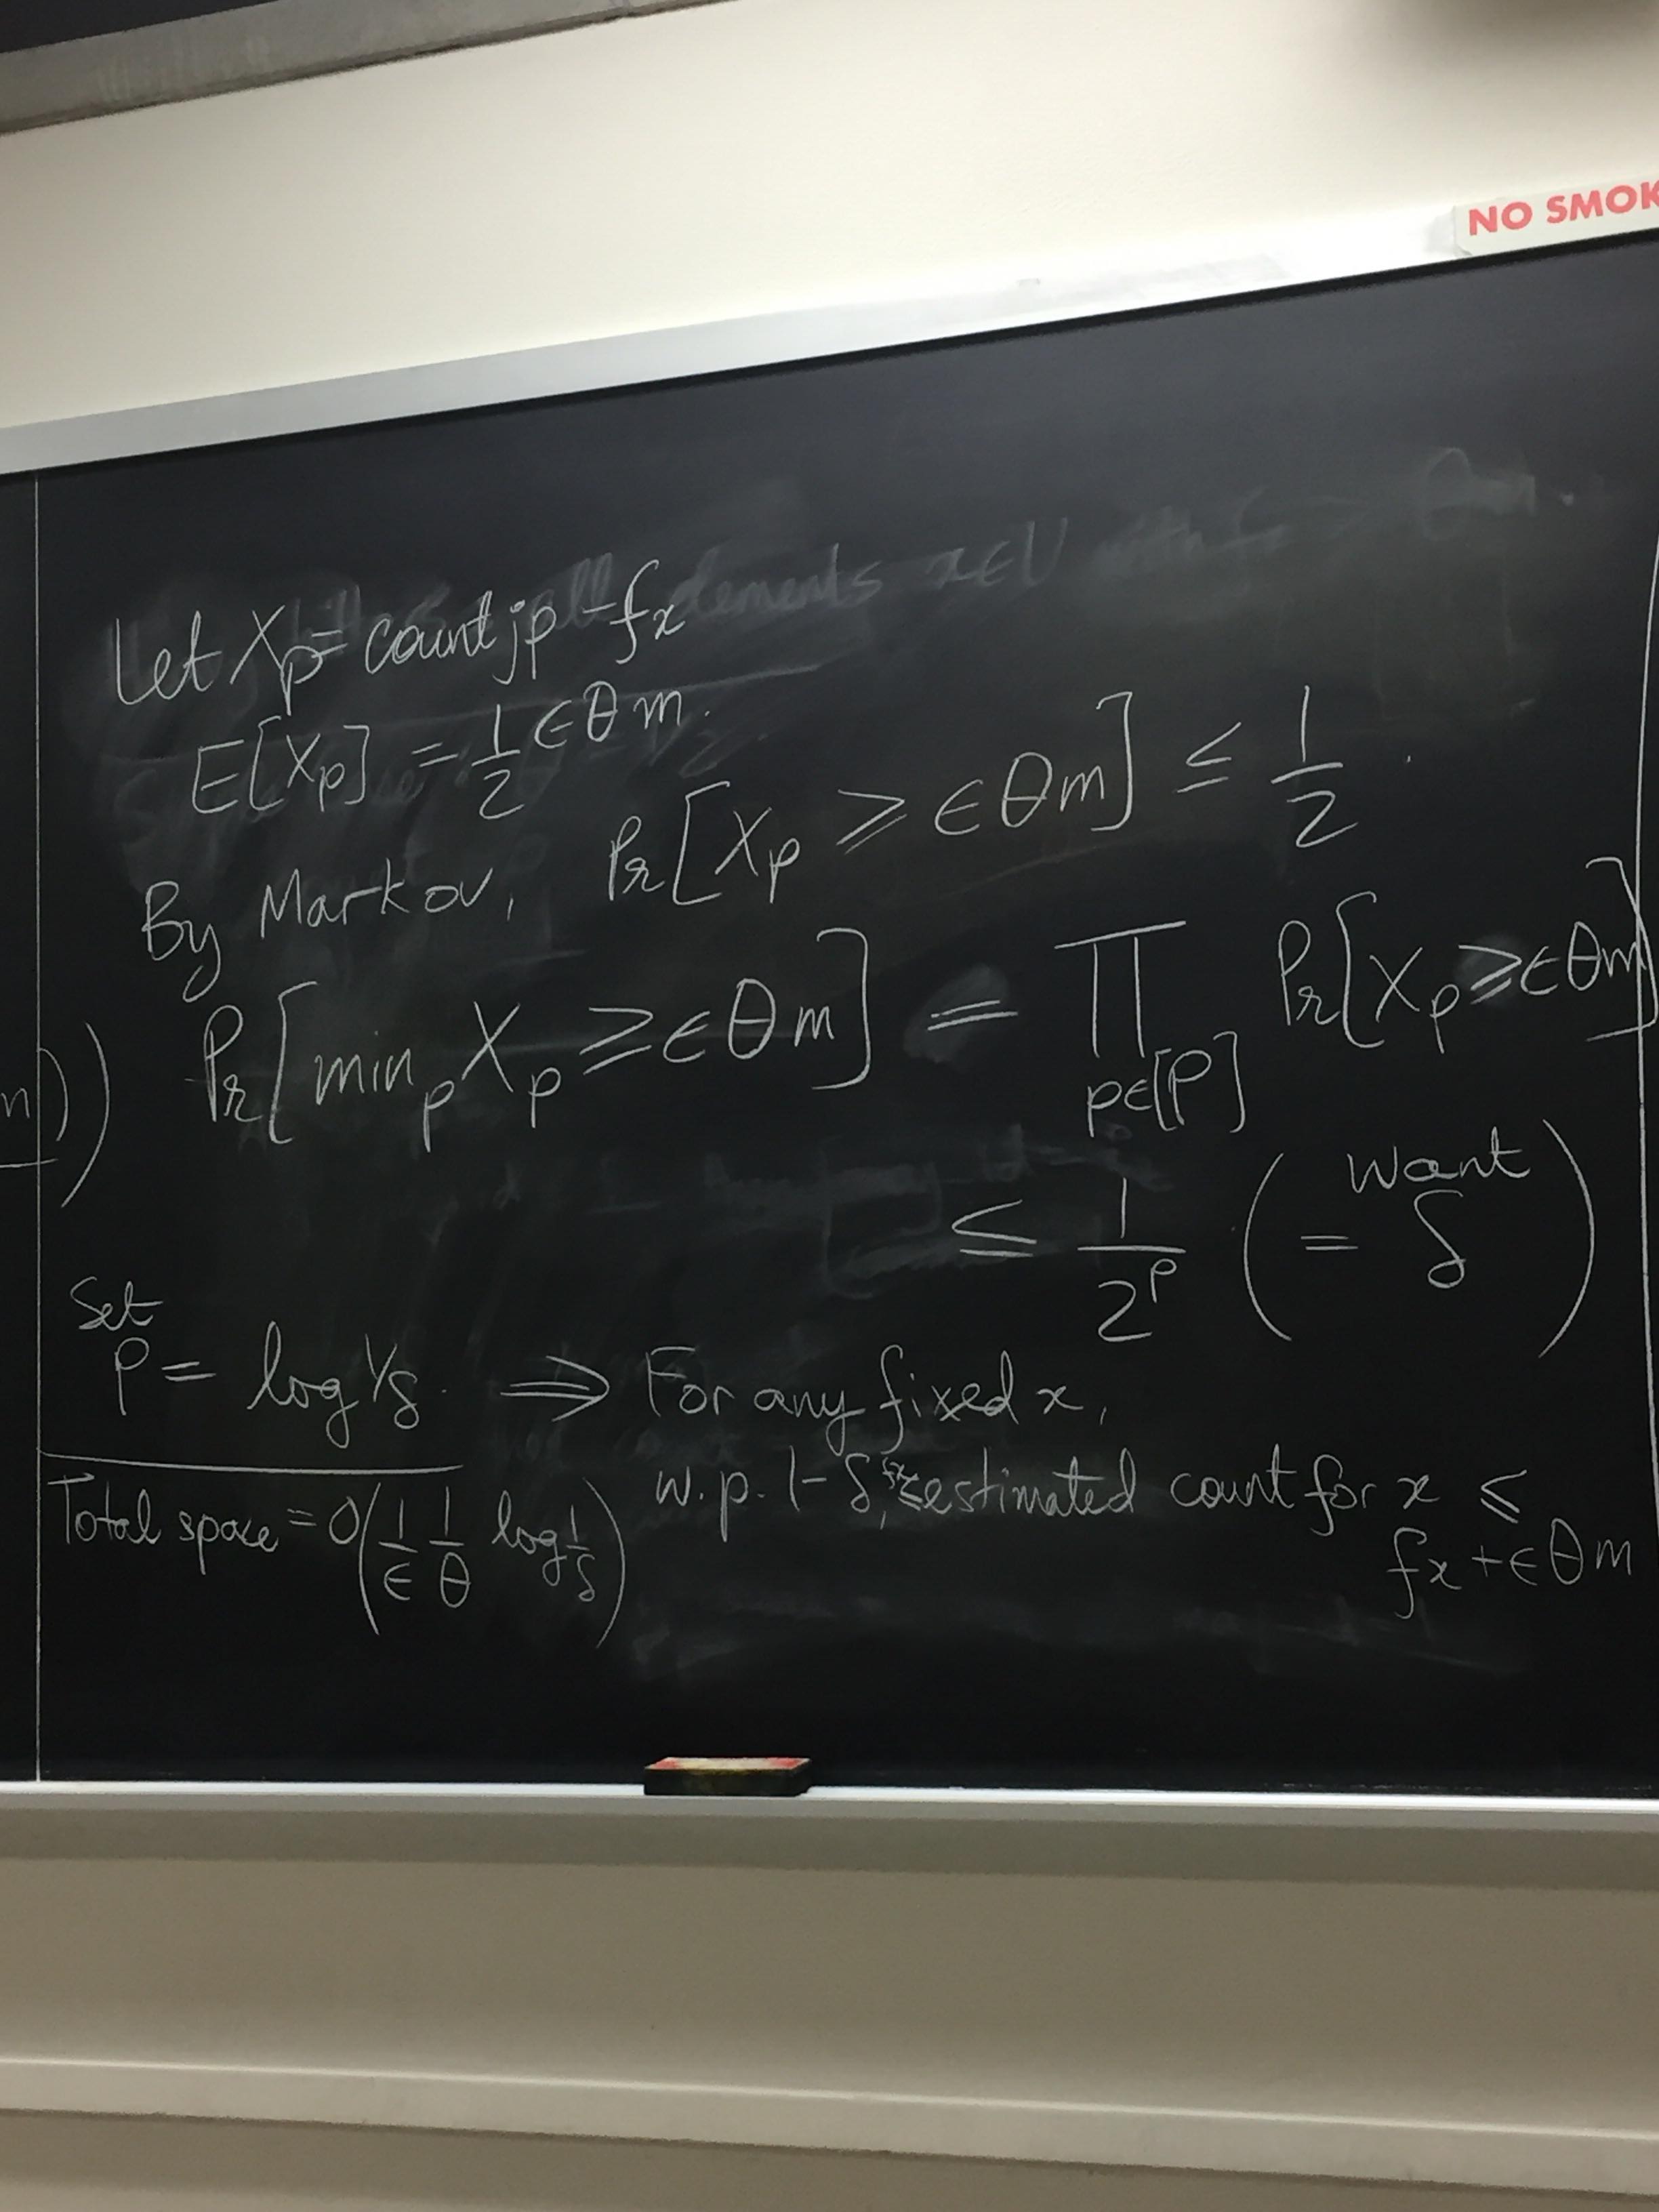 NO SMOK
elements x∈U
Let Xp = count jp - fx
E[Xp] = 1/2 ϵθm.
By Markov, Pr[Xp ≥ ϵθm] ≤ 1/2.
Pr[minp Xp ≥ ϵθm] = ∏p∈[P] Pr[Xp ≥ ϵθm]
≤ 1/2^P (= want δ)
Set
P = log 1/δ. ⇒ For any fixed x,
w.p. 1-δ, fx ≤ estimated count for x ≤
fx + ϵθm
Total space = O(1/ϵ 1/θ log 1/δ)